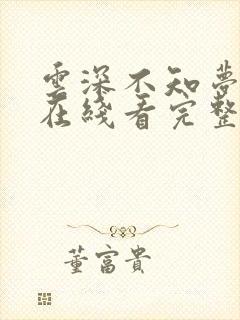 雲深不知夢
在綫看完整
董富貴